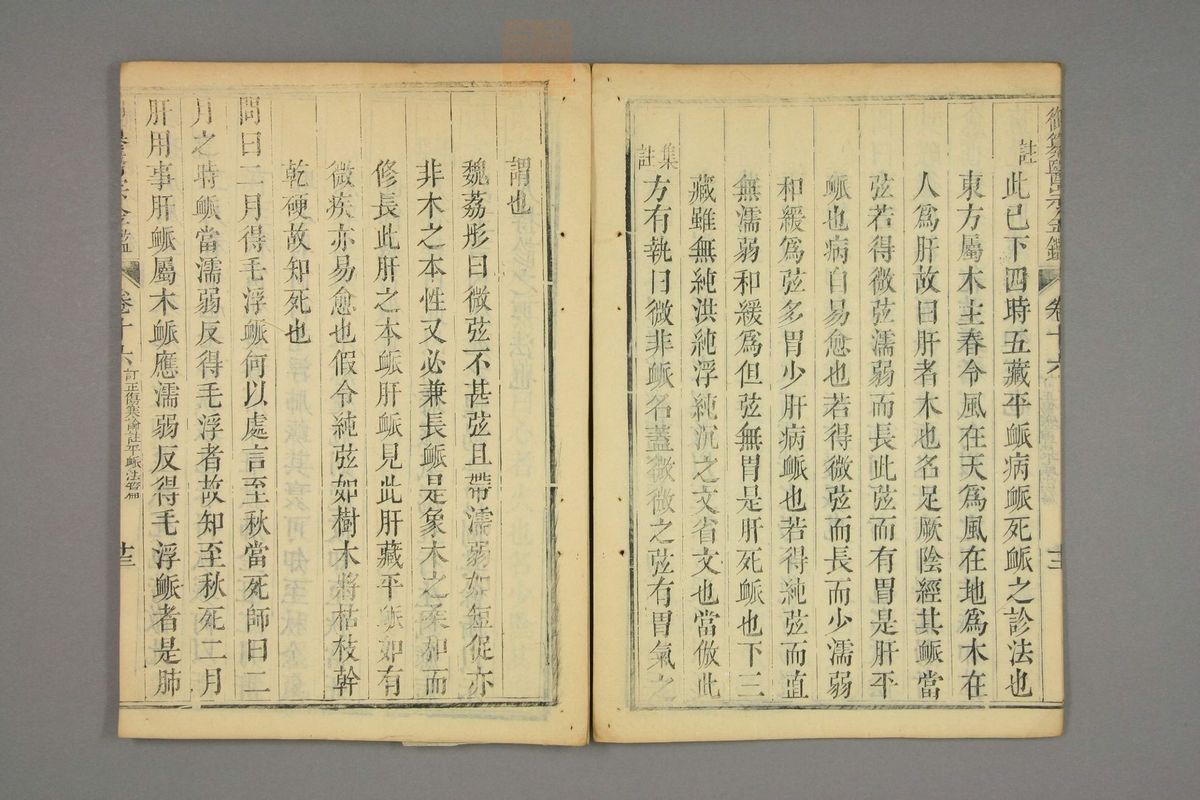 御纂醫宗金鑑 卷十六
註
此已下四時五藏平䘑病䘑死䘑之診法也
東方屬木主春令風在天爲風在地爲木在
人爲肝故曰肝者木也名足厥陰經其䘑當
弦若得微弦濡弱而長此弦而有胃是肝平
䘑也病自易愈也若得微弦而長而少濡弱
和緩爲弦多胃少肝病䘑也若得純弦而直
無濡弱和緩爲但弦無胃是肝死䘑也下三
藏雖無純洪純浮純沉之文省文也當倣此
集註
方有執曰微非䘑名蓋微微之弦有胃氣之
謂也
魏荔彤曰微弦不甚弦且帶濡弱如短促亦
非木之本性又必兼長䘑是象木之柔和而
修長此肝之本䘑肝䘑見此肝藏平䘑如有
微疾亦易愈也假令純弦如樹木將枯枝幹
乾硬故知死也
問曰二月得毛浮䘑何以處言至秋當死師曰二
月之時䘑當濡弱反得毛浮者故知至秋死二月
肝用事肝䘑屬木䘑應濡弱反得毛浮䘑者是肺
金鑑 卷十六 訂正傷寒論註平䘑法篇 廿三